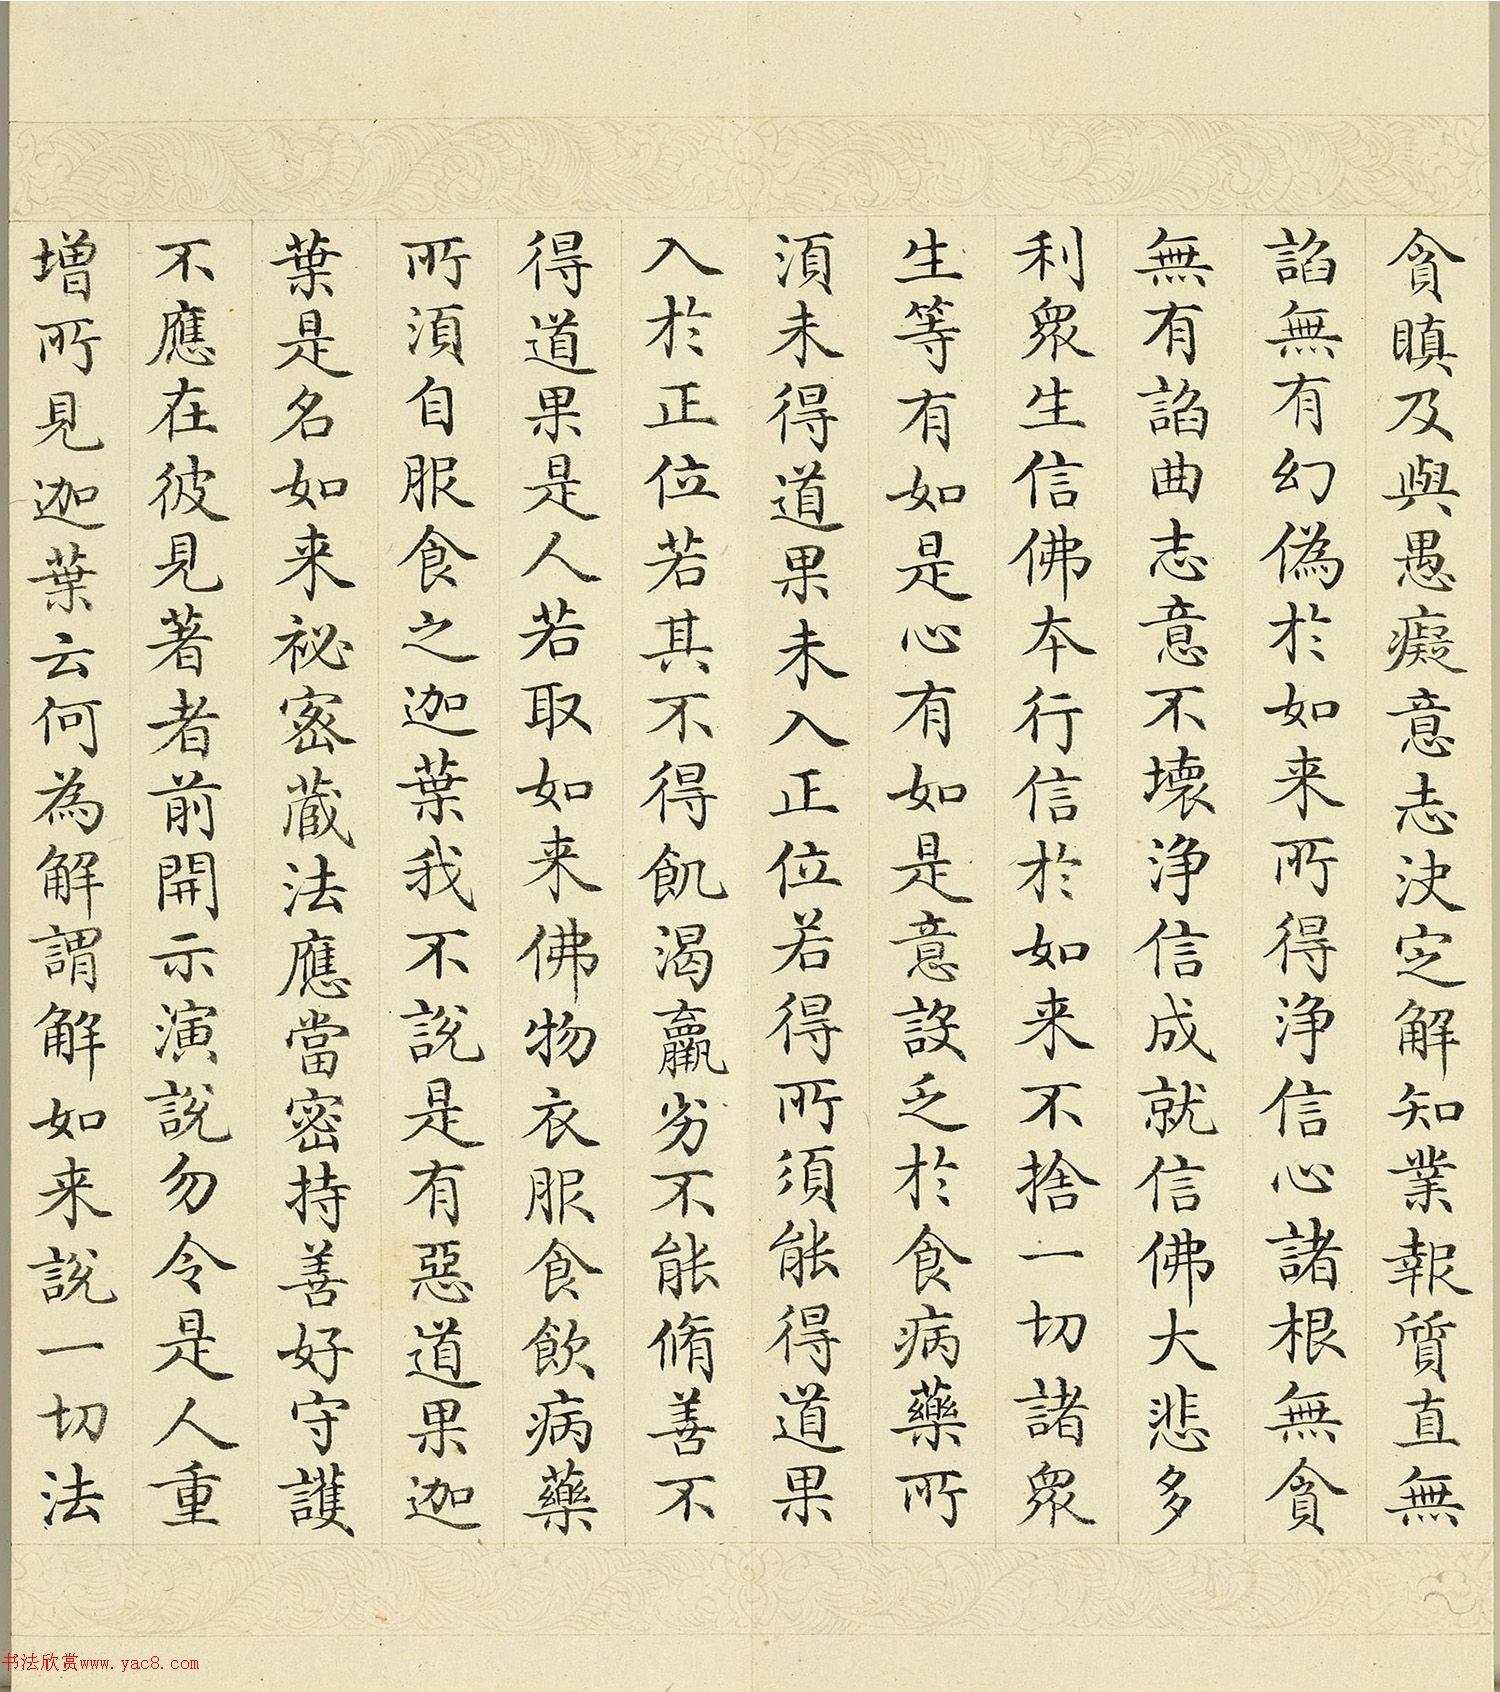 貪瞋及與愚癡意志決定解知業報質直無
諂無有幻偽於如来所得淨信心諸根無貪
無有諂曲志意不壞淨信成就信佛大悲多
利衆生信佛本行信於如来不捨一切諸衆
生等有如是心有如是意設乏於食病藥所
須未得道果未入正位若得所須能得道果
入於正位若其不得飢渴羸劣不能脩善不
得道果是人若取如来佛物衣服食飲病藥
所須自服食之迦葉我不說是有惡道果迦
葉是名如来祕密蔵法應當密持善好守護
不應在彼見著者前開示演說勿令是人重
增所見迦葉云何為解謂解如来說一切法
书法欣赏www.yac8.com